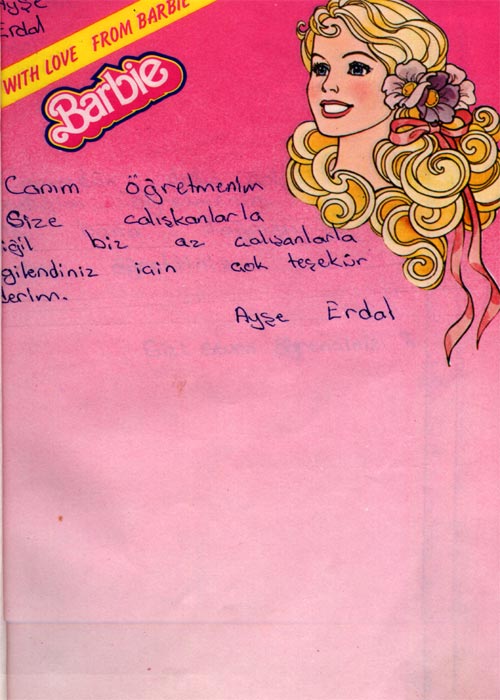 Ayşe
Erdal
WITH LOVE FROM BARBIE
Barbie
Canım öğretmenım
Size calışkanlarla
iğil biz az calışanlarla
gilendiniz icin cok teşekür
derim.
Ayşe Erdal